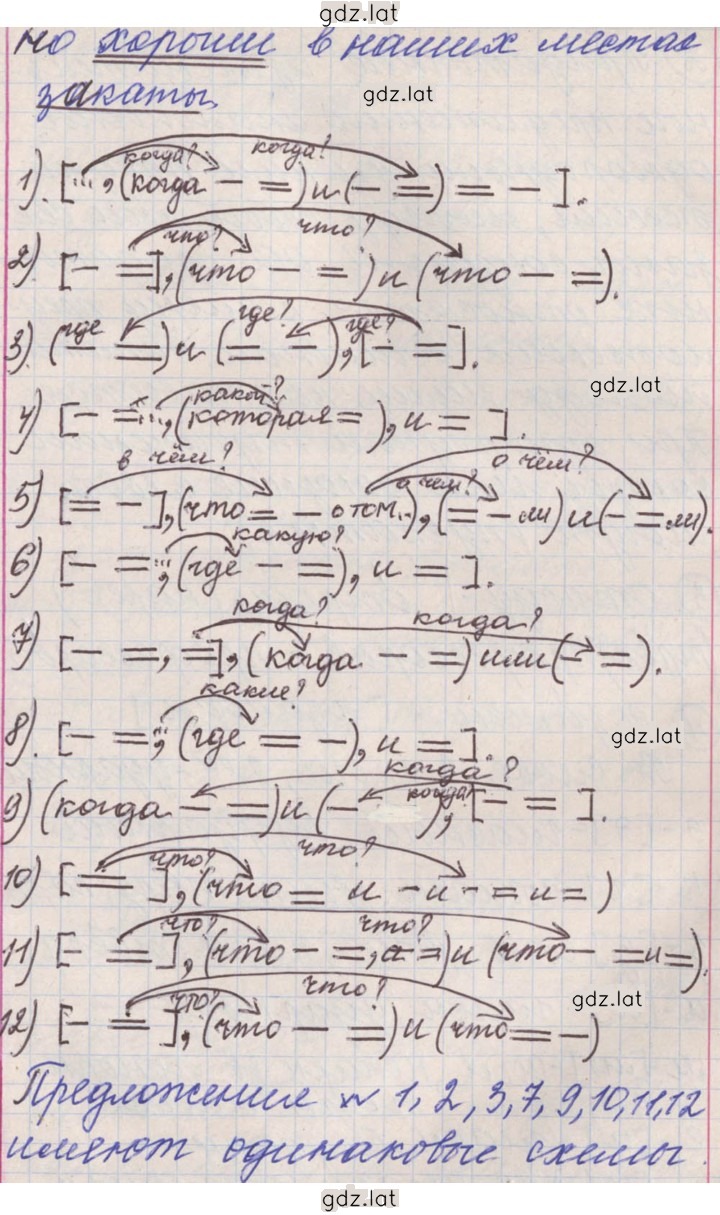 gdz.lat
но хороши в наших местах
закаты.
gdz.lat
когда? когда?
1). [..., (когда – =) и (– =) = – ].
что? что?
2). [– =], (что – = ) и (что – =).
где? где?
3). (где – =) и (= – ), [– =].
gdz.lat
какой?
4) [– =..., (которая = ), и = ].
в чём? о чём? о чём?
5) [= –], (что = – о том...), (= – ли) и (– = ли).
какую?
6) [– = ..., (где – =), и = ].
когда? когда?
7) [– =, =], (когда – =) или (– =).
какие?
8). [– = ..., (где = –), и = ].
gdz.lat
когда? когда
9) (когда – =) и (– ), [– = ].
что? что?
10) [= ], (что = и – и – = и = )
что? что?
11) [– =], (что – =, а =) и (что – = и =).
что? что?
gdz.lat
12) [– = ], (что – =) и (что = –)
Предложения № 1, 2, 3, 7, 9, 10, 11, 12
имеют одинаковые схемы.
gdz.lat